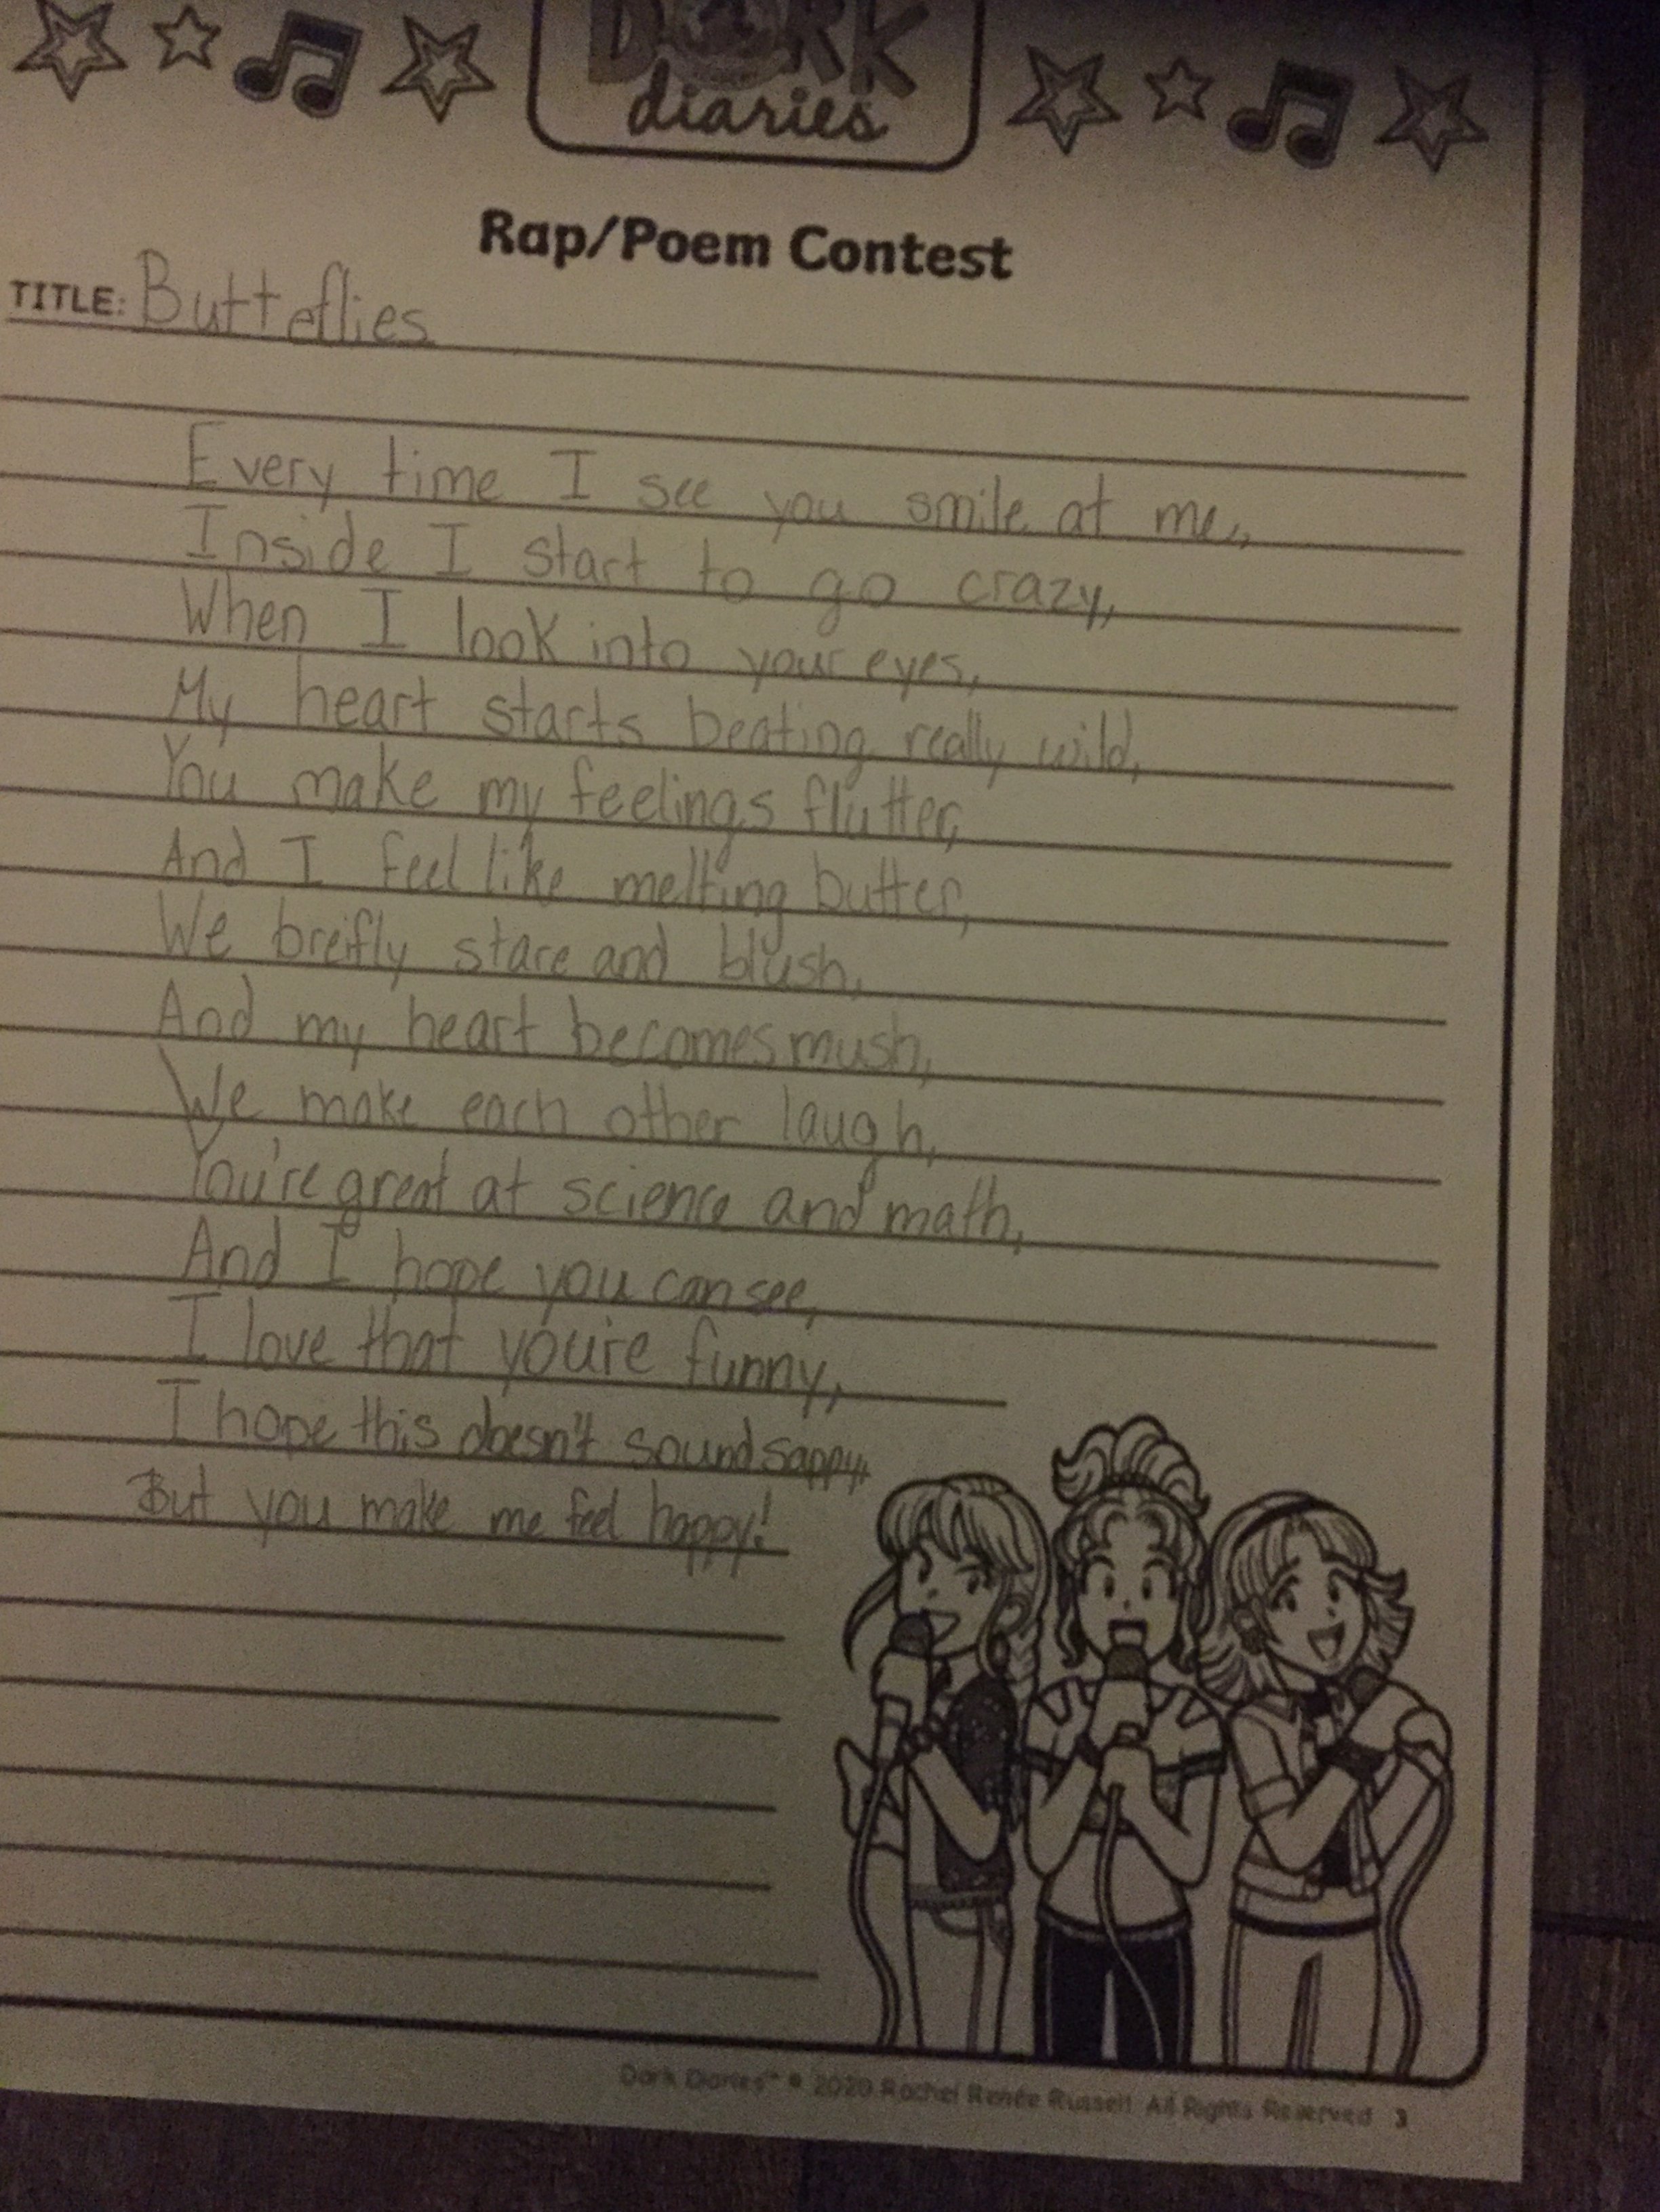 DORK
diaries
Rap/Poem Contest
TITLE: Butteflies
Every time I see you smile at me,
Inside I start to go crazy,
When I look into your eyes,
My heart starts beating really wild,
You make my feelings flutter,
And I feel like melting butter,
We breifly stare and blush,
And my heart becomes mush,
We make each other laugh,
You're great at science and math,
And I hope you can see,
I love that you're funny,
I hope this doesn't sound sappy,
But you make me feel happy!
Dork Diaries™ © 2020 Rachel Renée Russell. All Rights Reserved 3